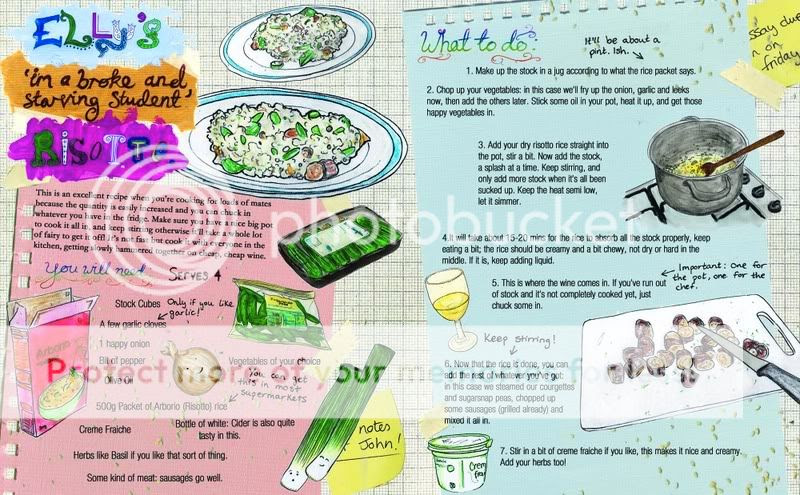 ELLy's
'i'm a broke and
starving Student'
RISOTTO
This is an excellent recipe when you're cooking for loads of mates
because the quantity is easily increased and you can chuck in
whatever you have in the fridge. Make sure you have a nice big pot
to cook it all in and keep stirring otherwise it'll take a whole lot
of fairy to get it off! It's nice to cook with everyone in the
kitchen, getting slowly hammered together on cheap, cheap wine.
You will need:
Serves 4
Stock Cubes
Only if you like
garlic!
A few garlic cloves
1 happy onion
Bit of pepper
Olive Oil
Vegetables of your choice
You can get
this in most
supermarkets
500g Packet of Arborio (Risotto) rice
Creme Fraiche
Bottle of white: Cider is also quite
tasty in this.
Herbs like Basil if you like that sort of thing.
Some kind of meat: sausages go well.
Arborio
notes
John!
What to do:
It'll be about a
pint. Ish.
1. Make up the stock in a jug according to what the rice packet says.
2. Chop up your vegetables: in this case we'll fry up the onion, garlic and leeks
now, then add the others later. Stick some oil in your pot, heat it up, and get those
happy vegetables in.
3. Add your dry risotto rice straight into
the pot, stir a bit. Now add the stock,
a splash at a time. Keep stirring, and
only add more stock when it's all been
sucked up. Keep the heat semi low,
let it simmer.
4.It will take about 15-20 mins for the rice to absorb all the stock properly, keep
eating a bit; the rice should be creamy and a bit chewy, not dry or hard in the
middle. If it is, keep adding liquid.
Important: one for
the pot, one for the
chef.
5. This is where the wine comes in. If you've run out
of stock and it's not completely cooked yet, just
chuck some in.
Keep stirring!
6. Now that the rice is done, you can
add the rest of whatever you've got:
in this case we steamed our courgettes
and sugarsnap peas, chopped up
some sausages (grilled already) and
mixed it all in.
7. Stir in a bit of creme fraiche if you like, this makes it nice and creamy.
Add your herbs too!
ssay due
n on
friday
photobucket